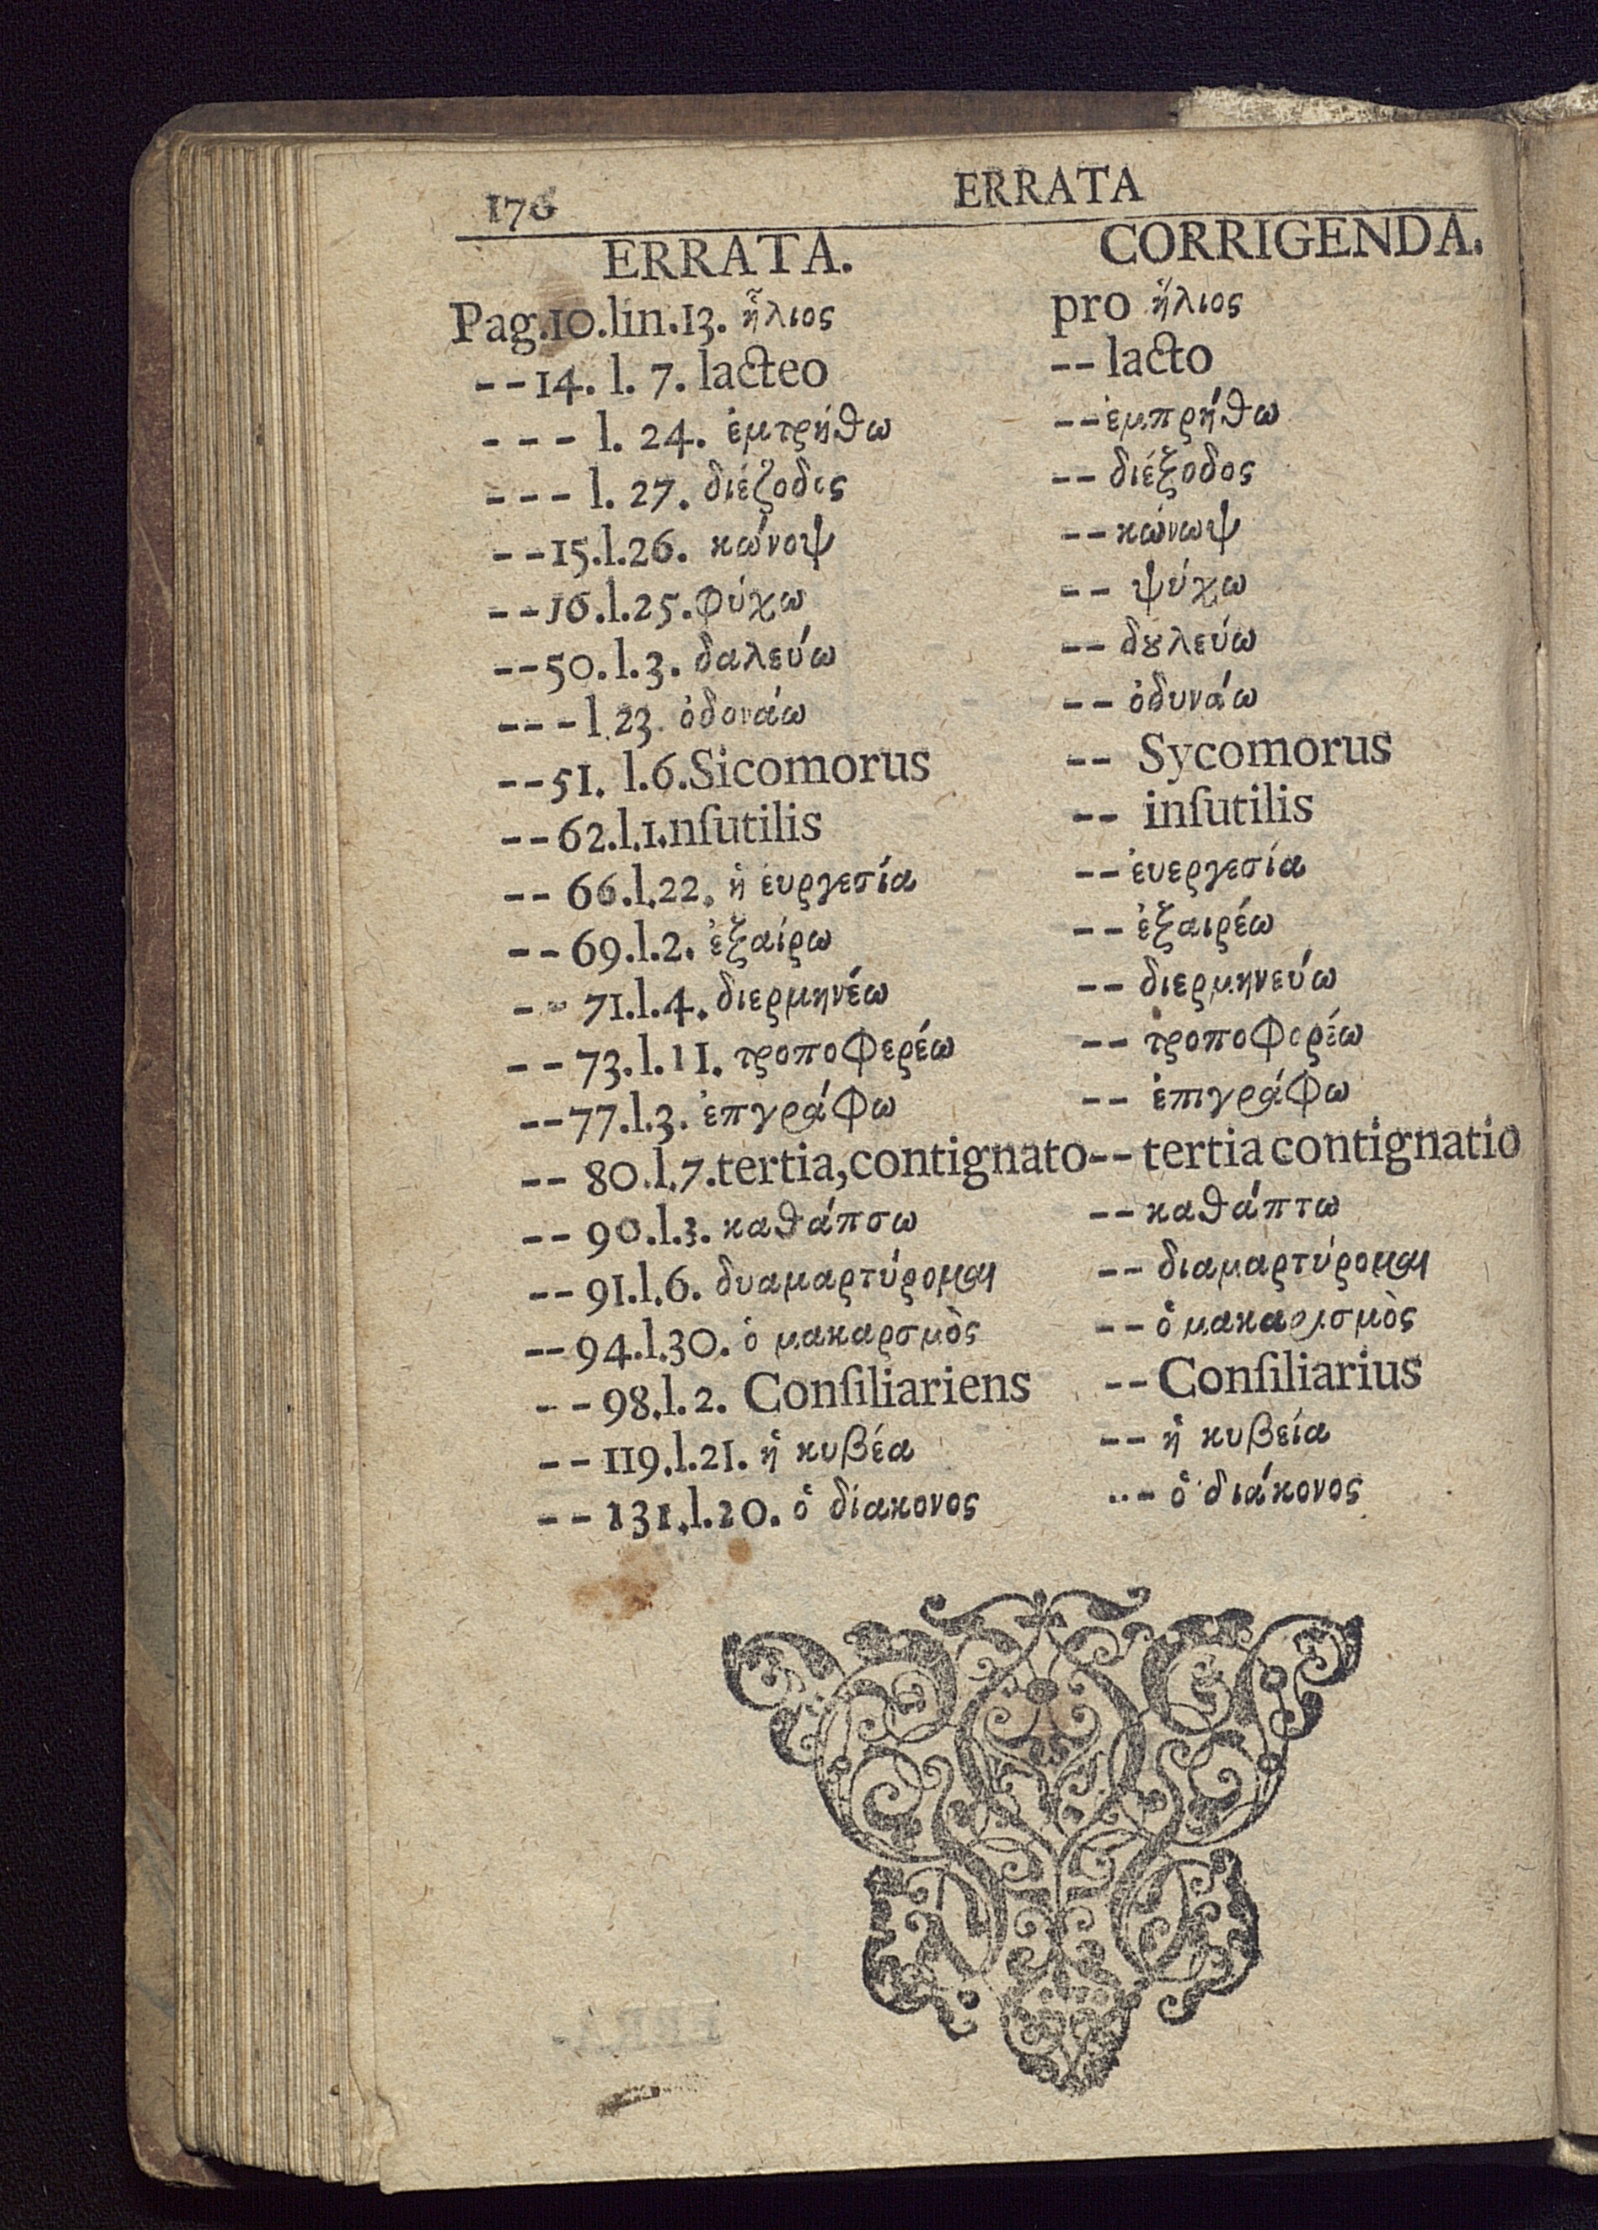 176 ERRATA
ERRATA. CORRIGENDA.
Pag.10.lin.13. ἦλιος pro ἥλιος
--14. l. 7. lacteo -- lacto
--- l. 24. ἐμτρήθω --ἐμπρήθω
--- l. 27. διέζοδος -- διέξοδος
--15.l.26. κώνοψ --κώνωψ
--16.l.25.φύχω -- ψύχω
--50.l.3. δαλεύω -- δȣλεύω
---l.23. ὀδονάω -- ὀδυνάω
--51. l.6.Sicomorus -- Sycomorus
--62.l.1.nſutilis -- inſutilis
-- 66.l.22. ἡ ἐυργεσία --ἐυεργεσία
--69.l.2. ἐξαίρω --ἐξαιρέω
-- 71.l.4. διερμηνέω -- διερμηνεύω
--73.l.11. τροποφερέω -- τροποφορέω
--77.l.3. ἐπγράφω -- ἐπιγράφω
-- 80.l.7.tertia,contignato-- tertia contignatio
-- 90.l.3. καθάπσω --καθάπτω
--91.l.6. δυαμαρτύρομαι -- διαμαρτύρομαι
--94.l.30. ὁ μακαρσμὸς --ὁ μακαρισμὸς
--98.l.2. Conſiliariens --Conſiliarius
--119.l.21. ἡ κυβέα -- ἡ κυβεία
--131.l.20. ὁ δίακονος -- ὁ διάκονος